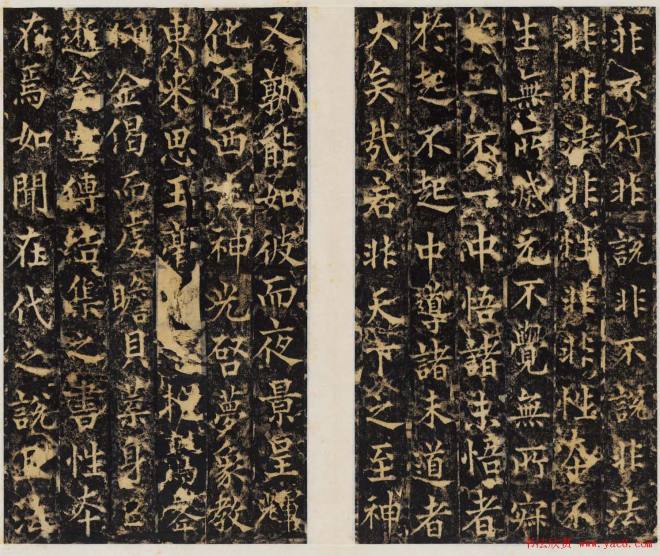 非不行非說非不說非法
非非法非性非非性本不
生無所滅元不覺無所寤
於一不一中悟諸未悟者
於起不起中導諸未道者
大矣哉若非天下之至神
又孰能如彼而夜景呈輝
化行西土神光啓夢象教
東來思玉毫
金偈而虔瞻貝葉身已
逝矣空傳結集之書性本
在焉如聞在代之說且法
书法欣赏 www.yac8.com